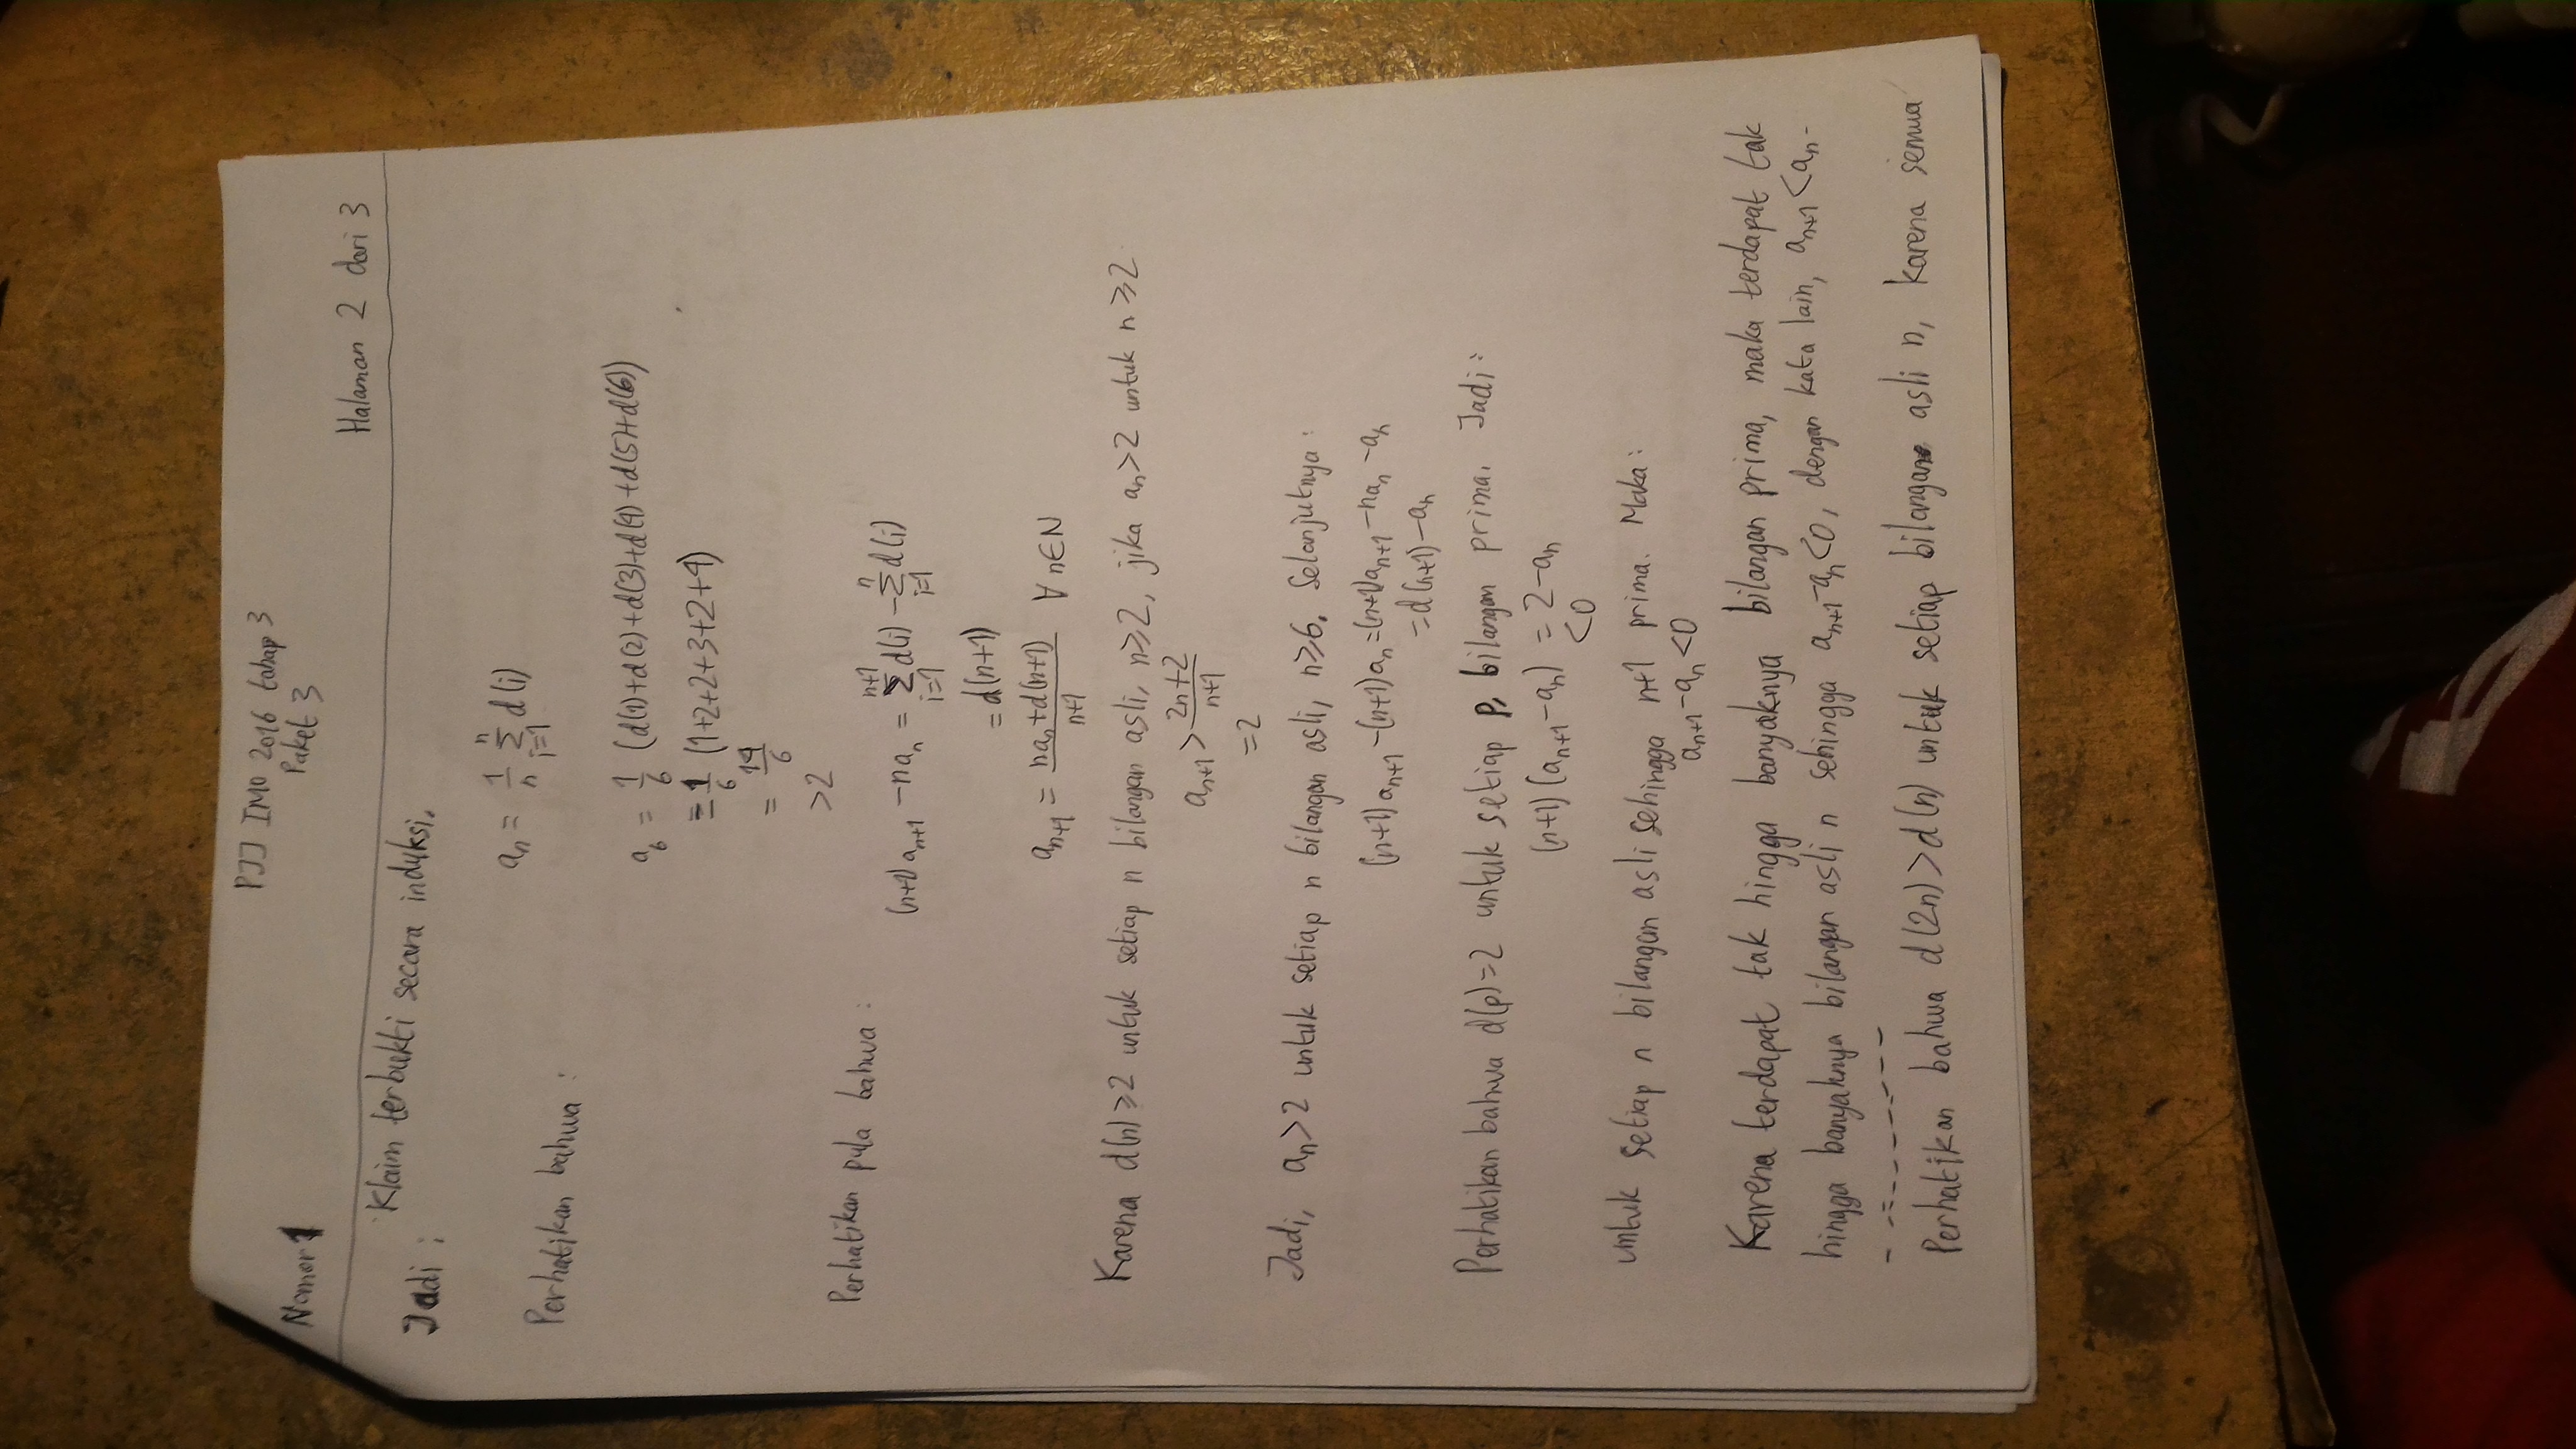 PJJ IMO 2016 tahap 3
Paket 3
Nomor 1
Halaman 2 dari 3
Klaim terbukti secara induksi.
Jadi :
a_n = 1/n Σ_{i=1}^{n} d(i)
Perhatikan bahwa :
a_6 = 1/6 (d(1)+d(2)+d(3)+d(4)+d(5)+d(6))
= 1/6 (1+2+2+3+2+4)
= 14/6
>2
Perhatikan pula bahwa :
(n+1)a_{n+1} - na_n = Σ_{i=1}^{n+1} d(i) - Σ_{i=1}^{n} d(i)
= d(n+1)
a_{n+1} = (na_n+d(n+1))/(n+1) ∀ n∈N
Karena d(n) ≥2 untuk setiap n bilangan asli, n≥2, jika a_n>2 untuk n ≥2
a_{n+1} > (2n+2)/(n+1)
=2
Jadi, a_n>2 untuk setiap n bilangan asli, n≥6. Selanjutnya :
(n+1)a_{n+1} -(n+1)a_n =(n+1)a_{n+1} -na_n -a_n
=d(n+1)-a_n
Perhatikan bahwa d(p)=2 untuk setiap p, bilangan prima. Jadi :
(n+1)(a_{n+1}-a_n) = 2-a_n
<0
untuk setiap n bilangan asli sehingga n+1 prima. Maka :
a_{n+1}-a_n <0
Karena terdapat tak hingga banyaknya bilangan prima, maka terdapat tak
hingga banyaknya bilangan asli n sehingga a_{n+1}-a_n<0, dengan kata lain, a_{n+1}<a_n.
Perhatikan bahwa d(2n)>d(n) untuk setiap bilangan asli n, karena semua